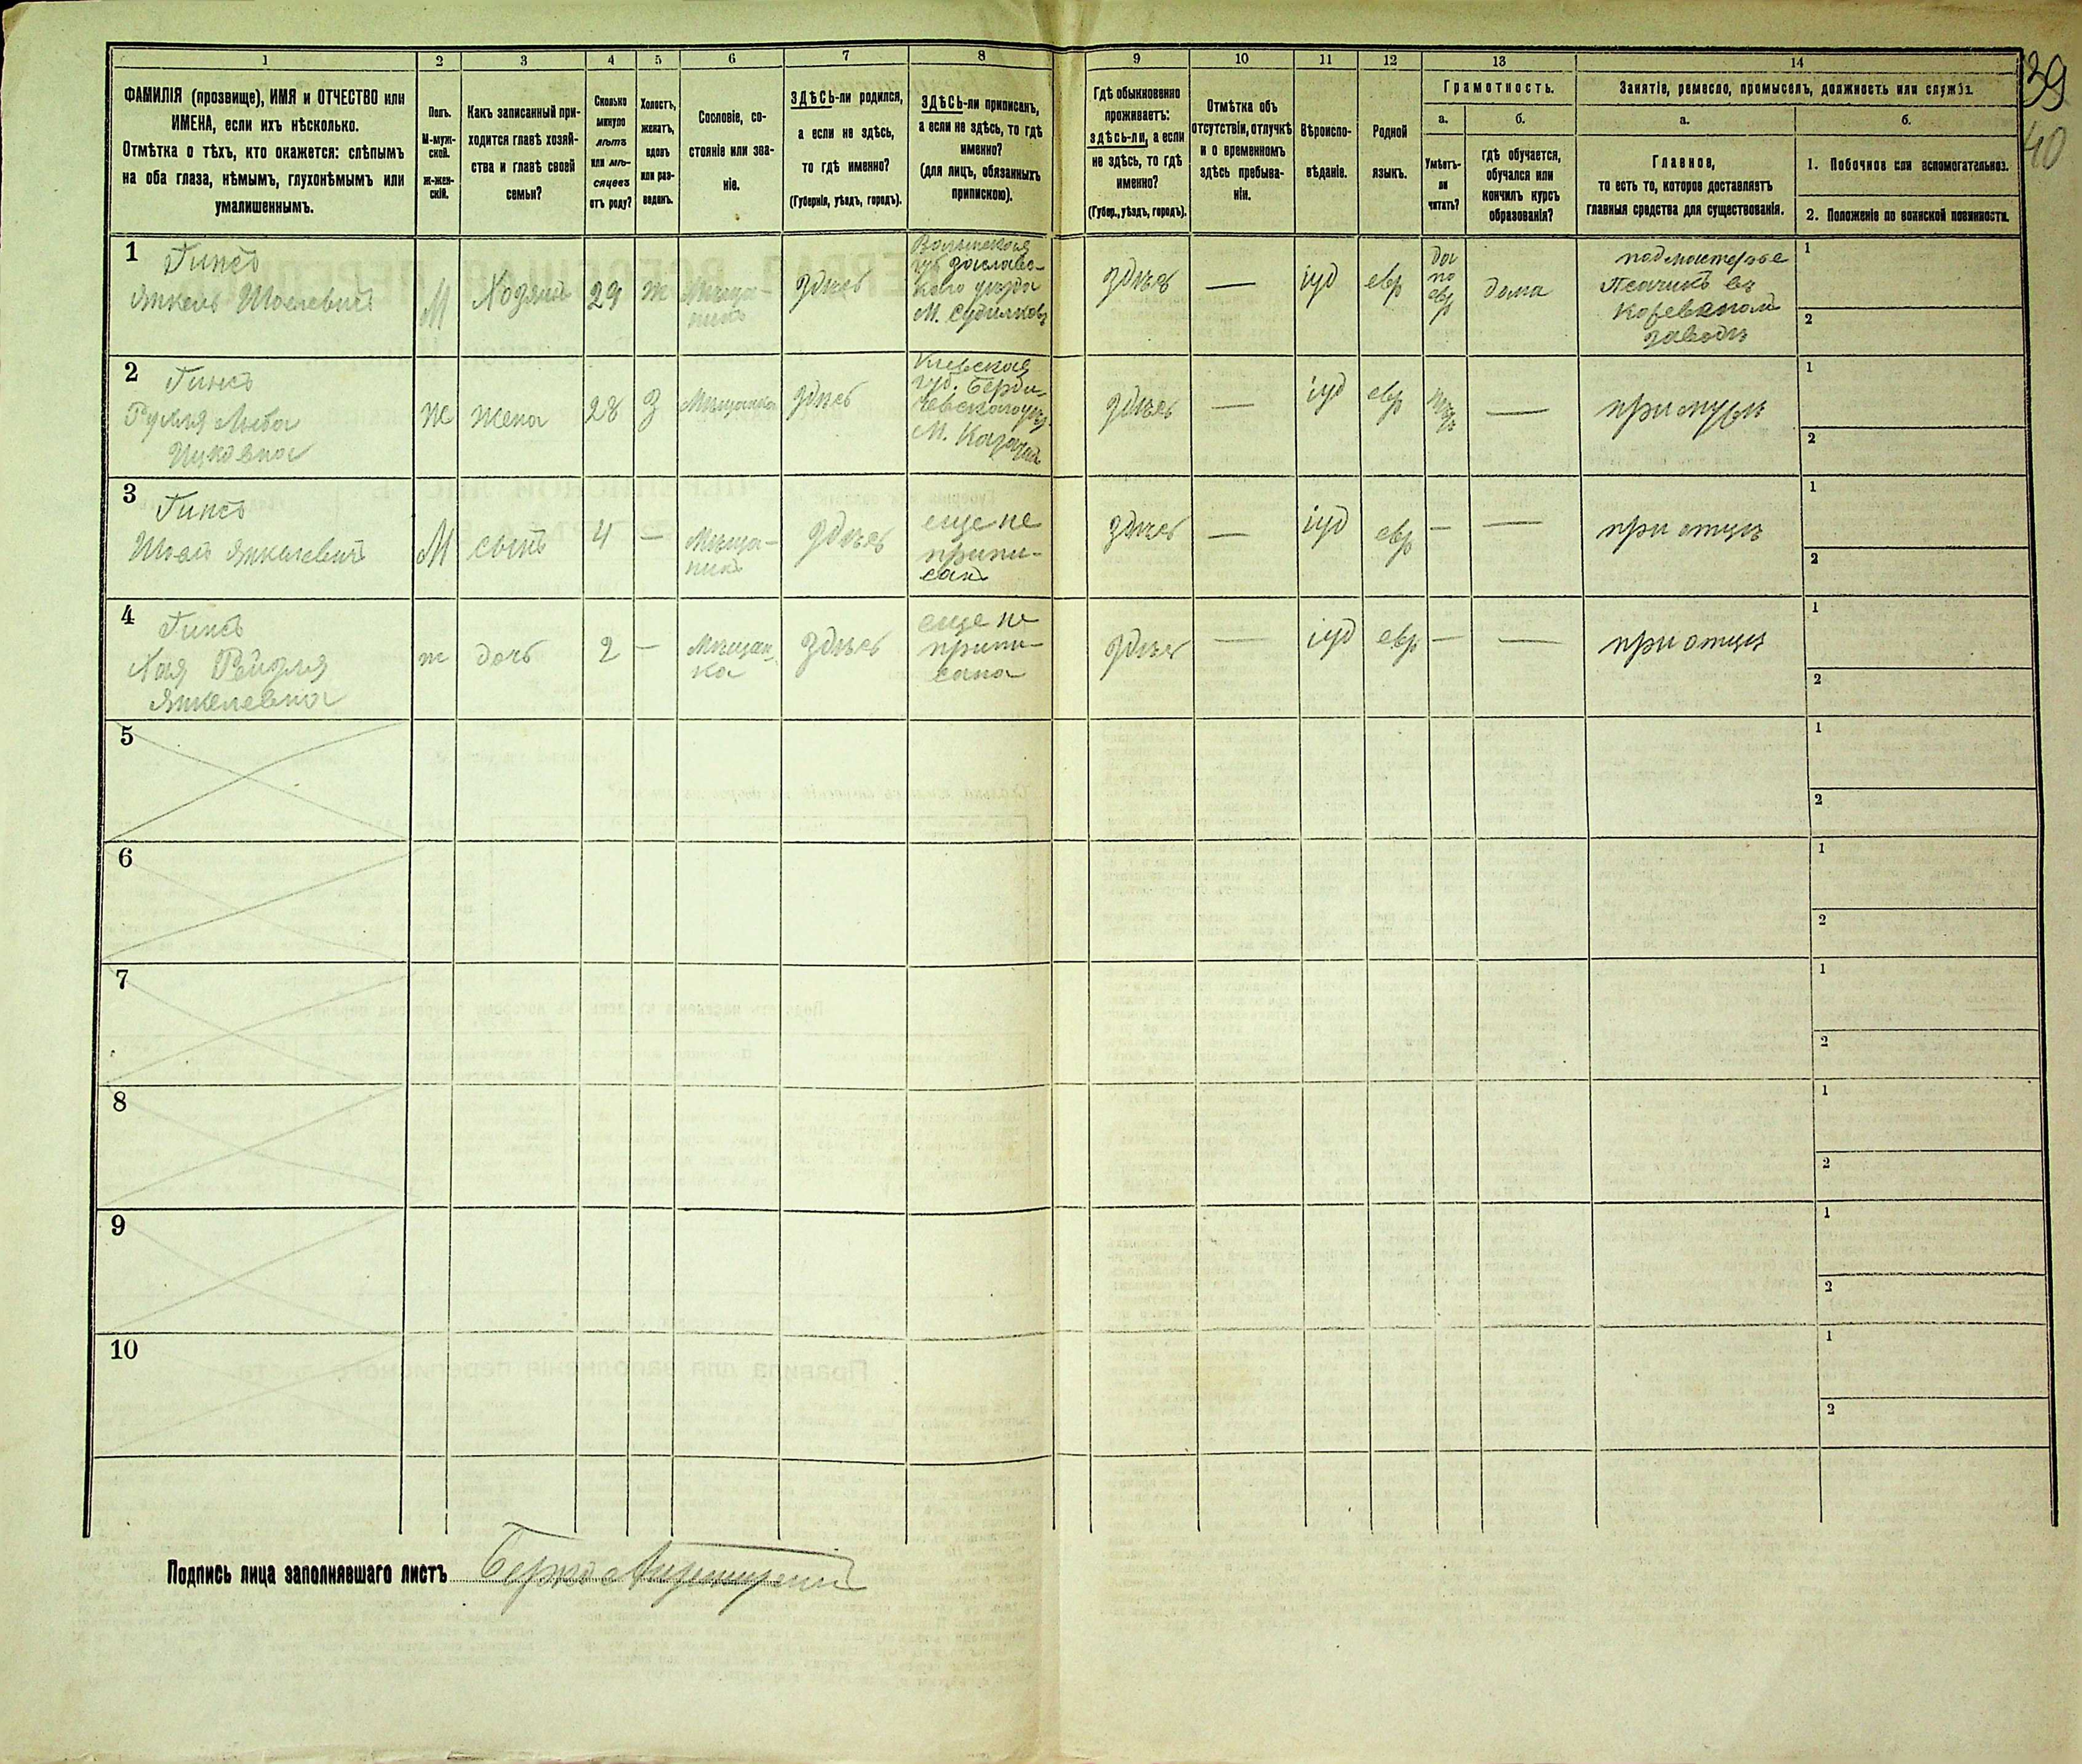 39
40
1 2 3 4 5 6 7 8 9 10 11 12 13 14
ФАМИЛІЯ (прозвище), ИМЯ и ОТЧЕСТВО или
ИМЕНА, если ихъ нѣсколько.
Отмѣтка о тѣхъ, кто окажется: слѣпымъ
на оба глаза, нѣмымъ, глухонѣмымъ или
умалишеннымъ.
Полъ.
М-муж-
ской.
Ж-жен-
скій.
Какъ записанный при-
ходится главѣ хозяй-
ства и главѣ своей
семьи?
Сколько
минуло
лѣтъ
или мѣ-
сяцевъ
отъ роду?
Холостъ,
женатъ,
вдовъ
или раз-
веденъ.
Сословіе, со-
стояніе или зва-
ніе.
ЗДѢСЬ-ли родился,
а если не здѣсь,
то гдѣ именно?
(Губернія, уѣздъ, городъ).
ЗДѢСЬ-ли приписанъ,
а если не здѣсь, то гдѣ
именно?
(для лицъ, обязанныхъ
припискою).
Гдѣ обыкновенно
проживаетъ:
здѣсь-ли, а если
не здѣсь, то гдѣ
именно?
(Губер., уѣздъ, городъ).
Отмѣтка объ
отсутствіи, отлучкѣ
и о временномъ
здѣсь пребыва-
ніи.
Вѣроиспо-
вѣданіе.
Родной
языкъ.
Грамотность.
а.
Умѣетъ-
ли
читать?
б.
гдѣ обучается,
обучался или
кончилъ курсъ
образованія?
Занятіе, ремесло, промыселъ, должность или служба.
а.
Главное,
то есть то, которое доставляетъ
главныя средства для существованія.
б.
1. Побочное или вспомогательное.
2. Положеніе по воинской повинности.
1
Гинсъ
Янкель
М
Хозяинъ
29
ж
Мѣща-
нинъ
здѣсь
Волынская
губ. Заславс-
каго уѣзда
М. Судилковъ
здѣсь
—
іуд
евр
да
по
евр
дома
подмастерье
въ
заводѣ
1
2
2
Гинсъ
Рухля Люба
Ицковна
Ж
жена
28
З
Мѣщанка
здѣсь
Кіевская
губ. Берди-
чевскаго уѣз.
М.
здѣсь
—
іуд
евр
—
при мужѣ
1
2
3
Гинсъ
Янкелевичъ
М
сынъ
4
—
Мѣща-
нинъ
здѣсь
еще не
припи-
санъ
здѣсь
—
іуд
евр
—
—
при отцѣ
1
2
4
Гинсъ
Хая Рейзля
Янкелевна
ж
дочь
2
—
Мѣщан-
ка
здѣсь
еще не
припи-
сана
здѣсь
—
іуд
евр
—
—
при отцѣ
1
2
5
1
2
6
1
2
7
1
2
8
1
2
9
1
2
10
1
2
Подпись лица заполнявшаго листъ Берко